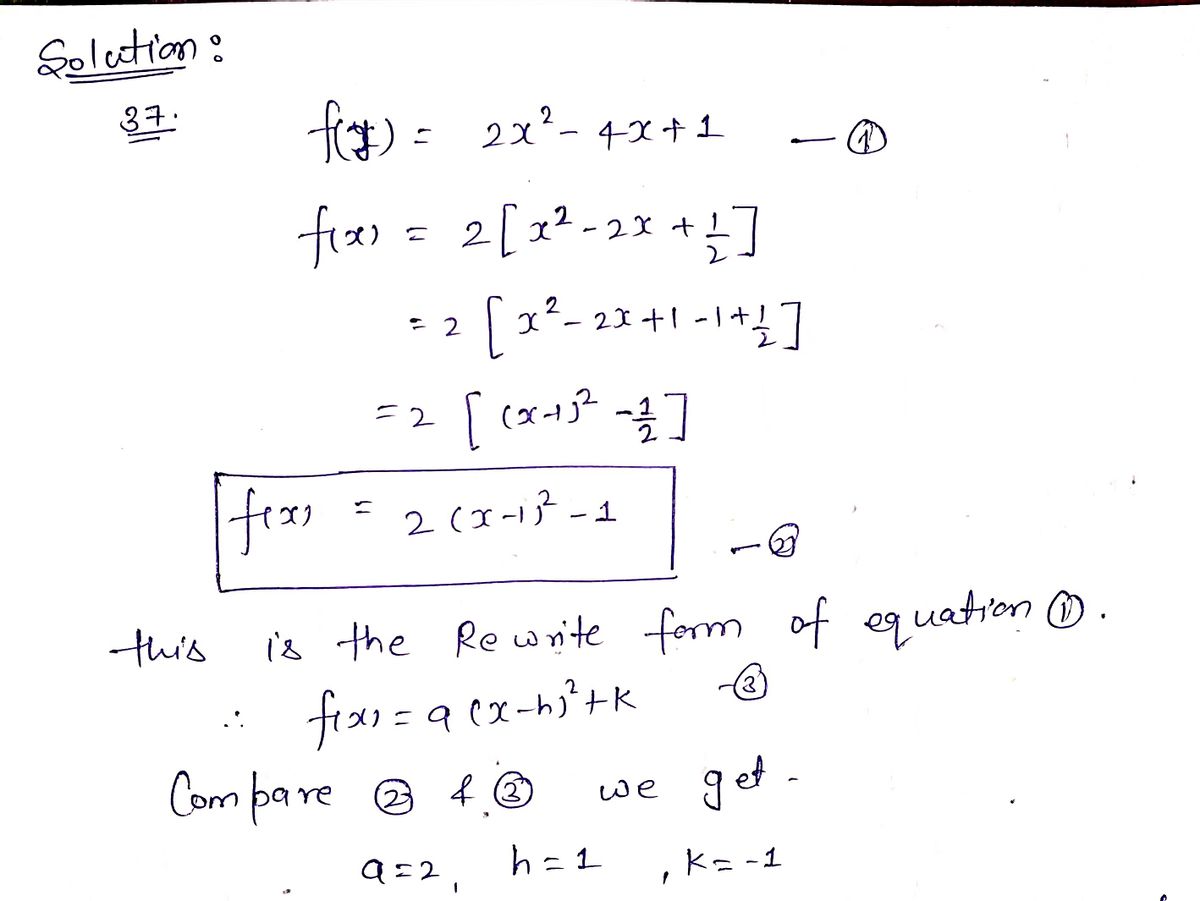 Solution:
37. f(x) = 2x² - 4x + 1 — ①
f(x) = 2[x² - 2x + 1/2]
= 2[x² - 2x + 1 - 1 + 1/2]
= 2[(x-1)² - 1/2]
f(x) = 2(x-1)² - 1 — ②
this is the Rewrite form of equation ①.
∴ f(x) = a(x-h)² + k — ③
Compare ② & ③ we get -
a=2, h=1, k=-1